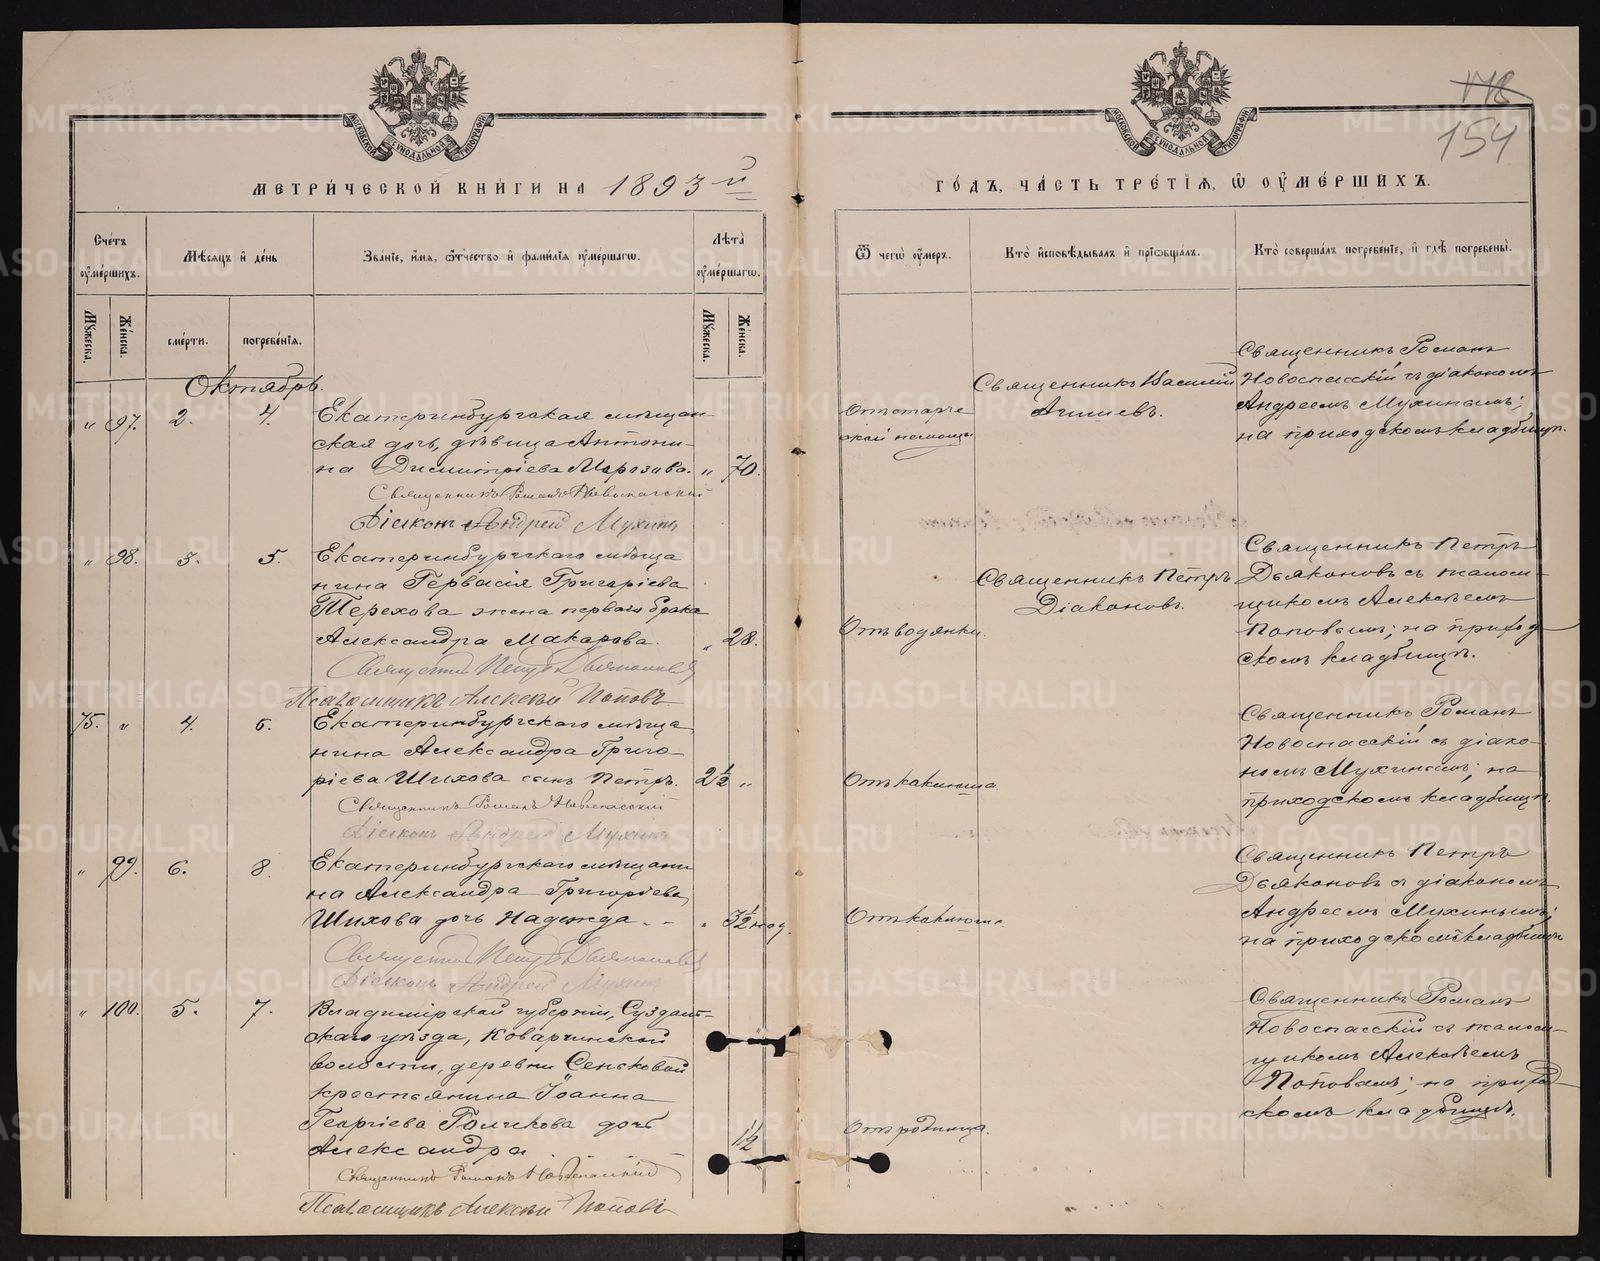 178
154
МОСКОВСКОЙ СѴНОДАЛЬНОЙ ТИПОГРАФІИ
МОСКОВСКОЙ СѴНОДАЛЬНОЙ ТИПОГРАФІИ
МЕТРИ́ЧЕСКОЙ КНИ́ГИ НА 1893 й
ГО́ДЪ, ЧА́СТЬ ТРЕ́ТІѦ, Ѡ҆ ОУ҆МЕ́РШИХЪ.
Сче́тъ оу҆ме́ршихъ.
Мѣ́сѧцъ и҆ де́нь
Зва́нїе, и҆́мѧ, ѻ҆́тчество и҆ фами́лїѧ оу҆ме́ршагѡ.
Лѣ́та оу҆ме́ршагѡ.
Ѿ чегѡ̀ оу҆́меръ.
Кто̀ и҆сповѣ́дывалъ и҆ прїѡбща́лъ.
Кто̀ соверша́лъ погребе́нїе, и҆ гдѣ̀ погребены̀.
Мꙋ́жеска.
Же́нска.
сме́рти.
погребе́нїѧ.
Мꙋ́жеска.
Же́нска.
Октябрь.
" 97. 2. 4.
Екатеринбургская мѣщан-
ская дочь, дѣвица Антони-
на Димитріева Морозова. " 70.
Священникъ Романъ Новоспасскій
Діаконъ Андрей Мухинъ
Отъ старче
ской немощи
Священникъ Василій
Агишевъ.
Священникъ Романъ
Новоспасскій съ діакономъ
Андреемъ Мухинымъ;
на приходскомъ кладбищѣ.
" 98. 3. 5.
Екатеринбургскаго мѣща
нина Гервасія Григоріева
Терехова жена перваго брака
Александра Макарова. " 28.
Священникъ Петръ Дьяконовъ
Псаломщикъ Алексѣй Поповъ
Отъ водянки.
Священникъ Петръ
Діаконовъ.
Священникъ Петръ
Дьяконовъ съ псалом-
щикомъ Алексѣемъ
Поповымъ; на приход
скомъ кладбищѣ.
75. " 4. 6.
Екатеринбургскаго мѣща
нина Александра Григо-
ріева Шихова сынъ Петръ. 2½ "
Священникъ Романъ Новоспасскій
Діаконъ Андрей Мухинъ
Отъ каклюша.
Священникъ Романъ
Новоспасскій съ діако-
номъ Мухинымъ; на
приходскомъ кладбищѣ.
" 99. 6. 8.
Екатеринбургскаго мѣщани
на Александра Григоріева
Шихова дочь Надежда. - - " 3½ нед.
Священникъ Петръ Дьяконовъ
Діаконъ Андрей Мухинъ
Отъ каклюша.
Священникъ Петръ
Дьяконовъ съ діакономъ
Андреемъ Мухинымъ;
на приходскомъ кладбищѣ
" 100. 5. 7.
Владимірской губерніи, Суздаль-
скаго уѣзда, Коварчинской
волости, деревни Сеньковой
крестьянина Іоанна
Георгіева дочь
Александра 1½
Священникъ Романъ Новоспасскій
Псаломщикъ Алексѣй Поповъ
Отъ родимца.
Священникъ Романъ
Новоспасскій съ псалом-
щикомъ Алексѣемъ
Поповымъ; на приход
скомъ кладбищѣ.
METRIKI.GASO-URAL.RU